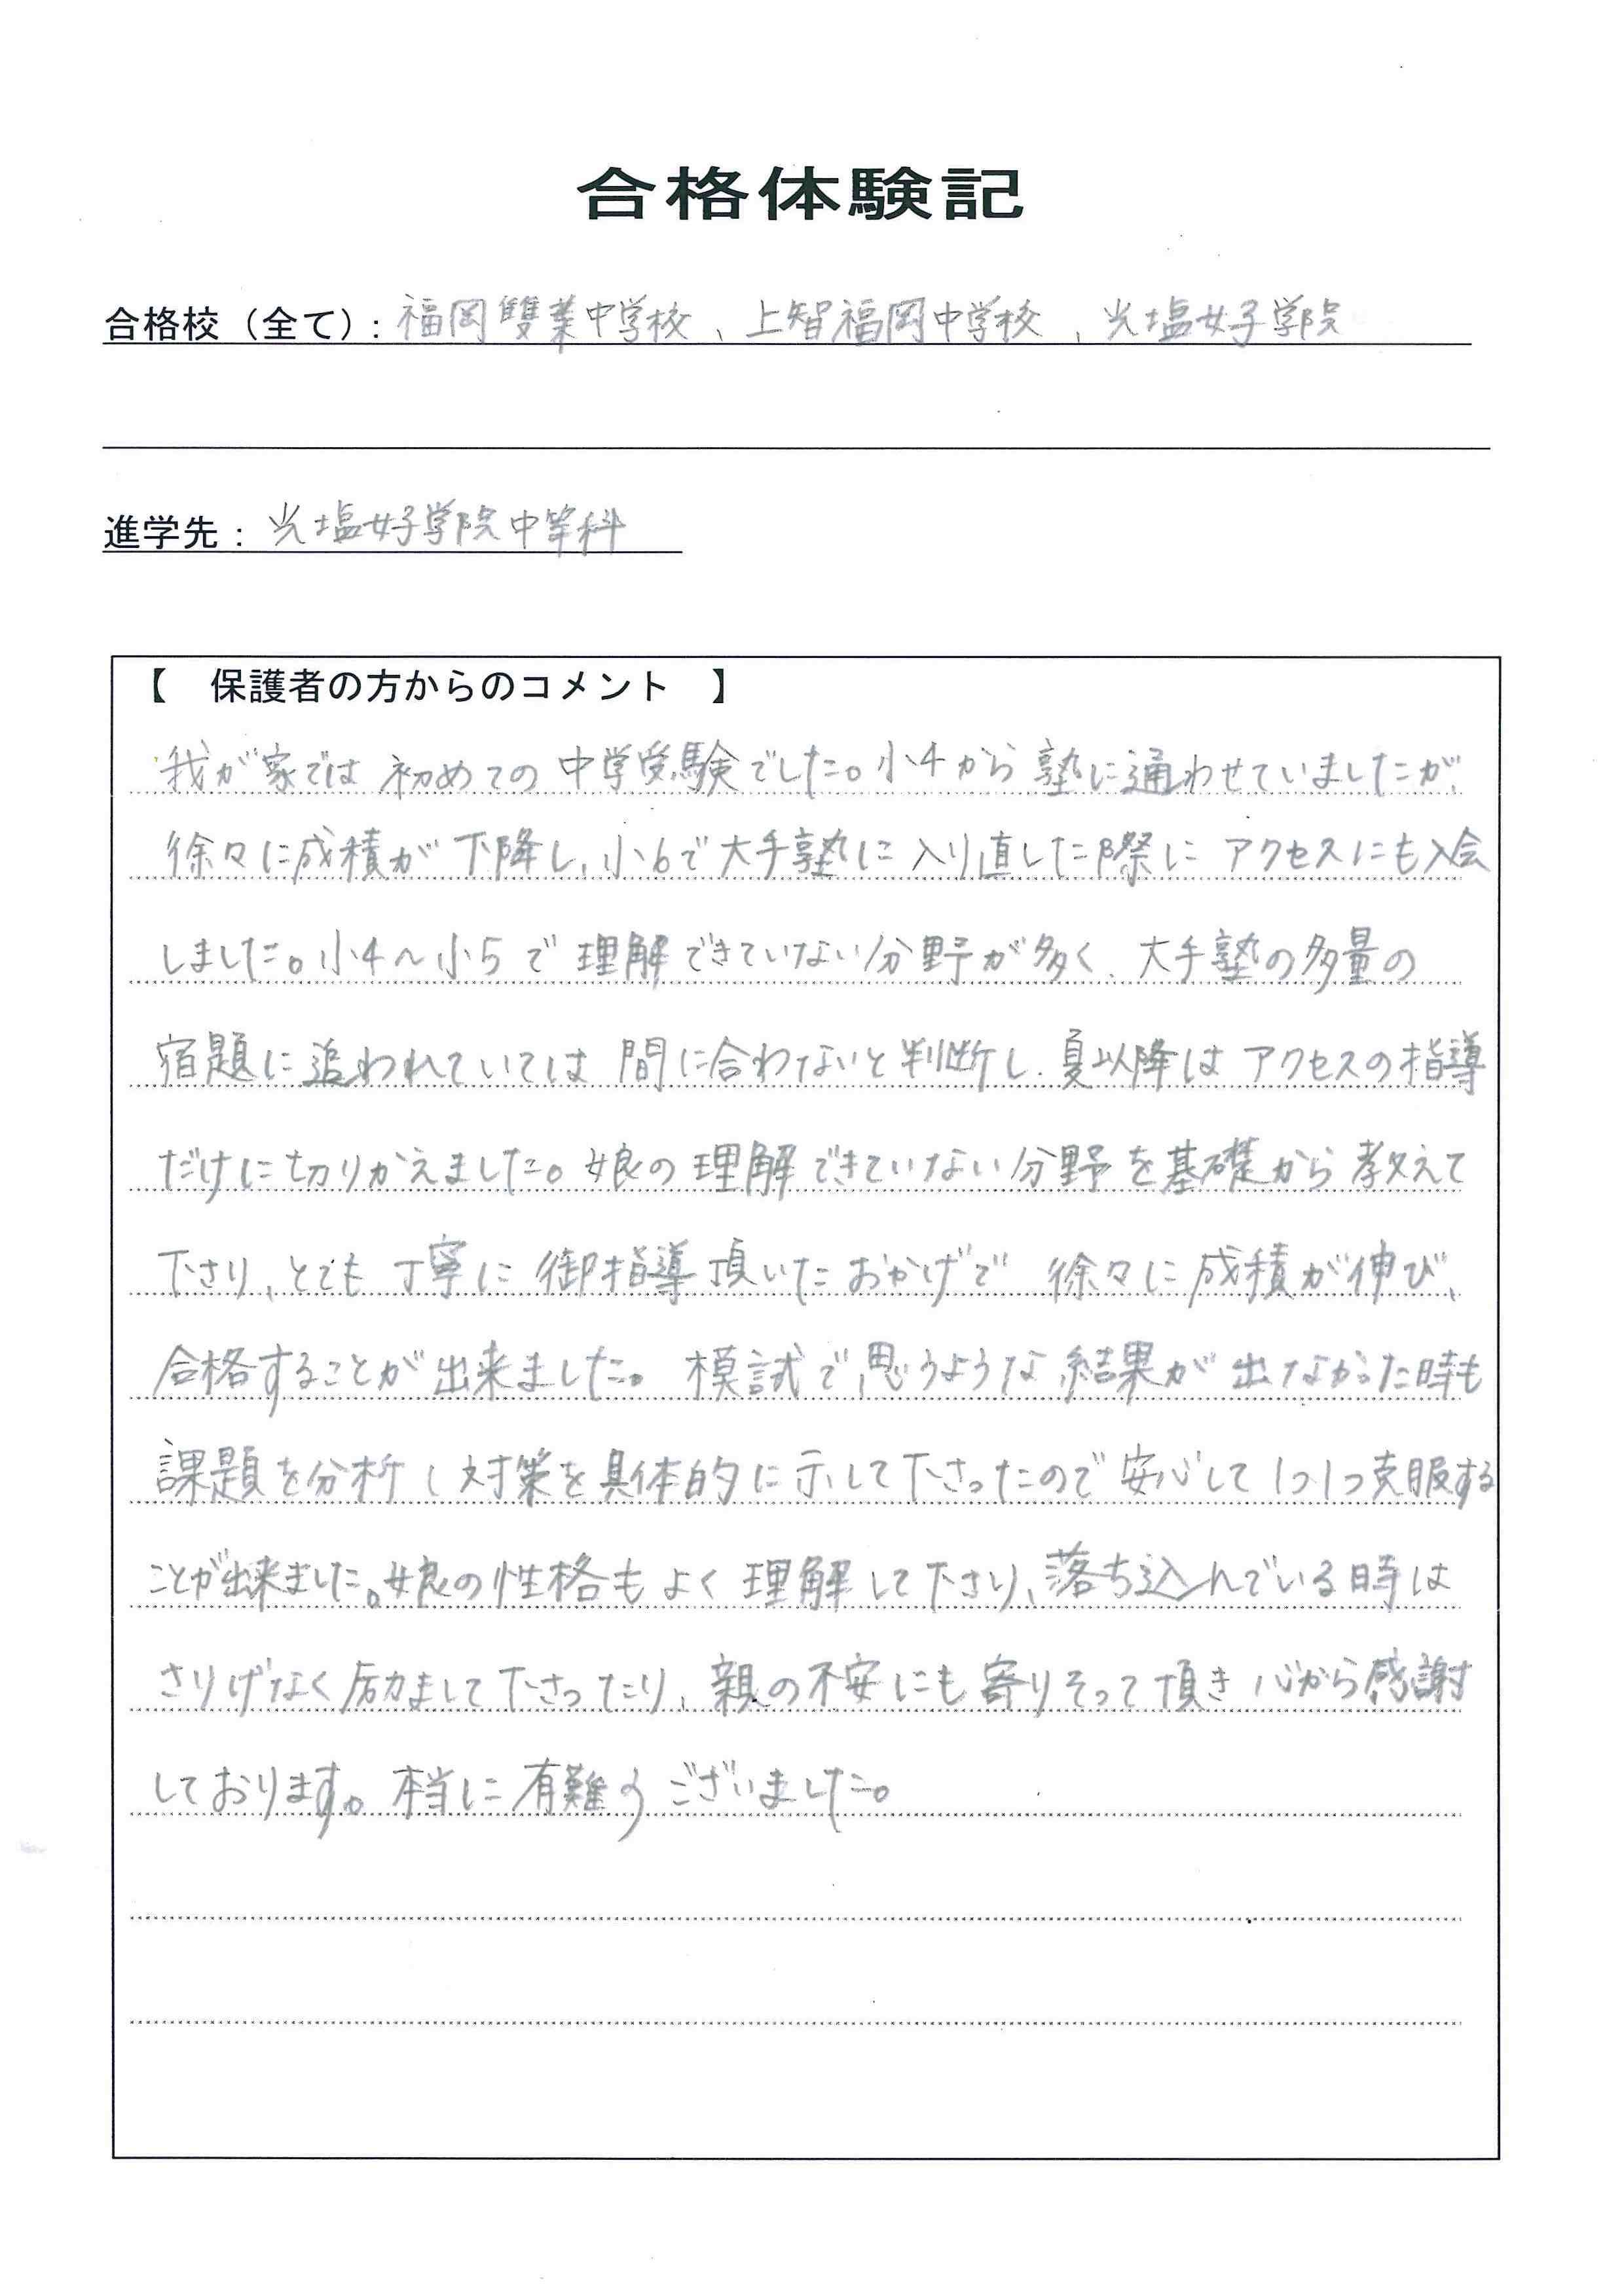 合格体験記
合格校（全て）: 福岡雙葉中学校、上智福岡中学校、光塩女子学院
進学先： 光塩女子学院中等科
【　保護者の方からのコメント　】
我が家では初めての中学受験でした。小4から塾に通わせていましたが、
徐々に成積が下降し、小6で大手塾に入り直した際にアクセスにも入会
しました。小4～小5で理解できていない分野が多く、大手塾の多量の
宿題に追われていては間に合わないと判断し、夏以降はアクセスの指導
だけに切りかえました。娘の理解できていない分野を基礎から教えて
下さり、とても丁寧に御指導頂いたおかげで徐々に成積が伸び、
合格することが出来ました。模試で思うような結果が出なかった時も
課題を分析し対策を具体的に示して下さったので安心して1つ1つ克服する
ことが出来ました。娘の性格もよく理解して下さり、落ち込んでいる時は
さりげなく励まして下さったり、親の不安にも寄りそって頂き心から感謝
しております。本当に有難うございました。